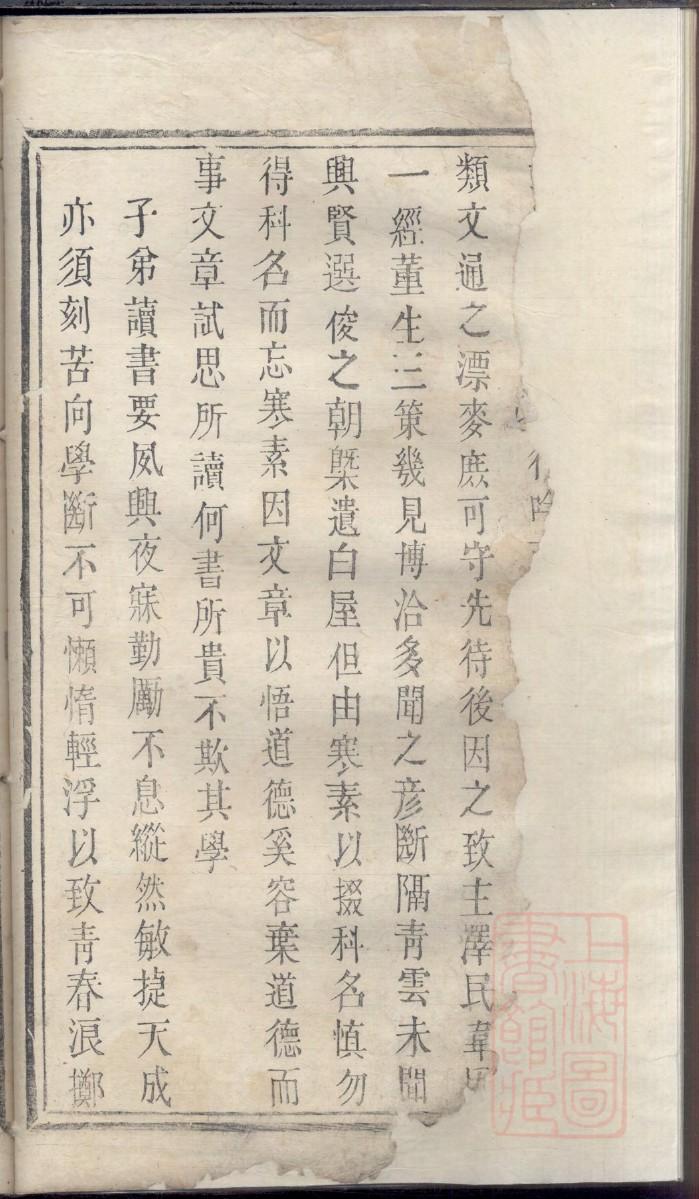 類文通之漂麥庶可守先待後因之致主澤民韋
一經董生三策幾見博洽多聞之彥斷隔靑雲未聞
興賢選俊之朝槩遺白屋但由寒素以掇科名慎勿
得科名而忘寒素因文章以悟道德奚容棄道德而
事文章試思所讀何書所貴不欺其學
子弟讀書要夙興夜寐勤勵不息縱然敏捷天成
亦須刻苦向學斷不可懶惰輕浮以致靑春浪擲
上海圖書館藏